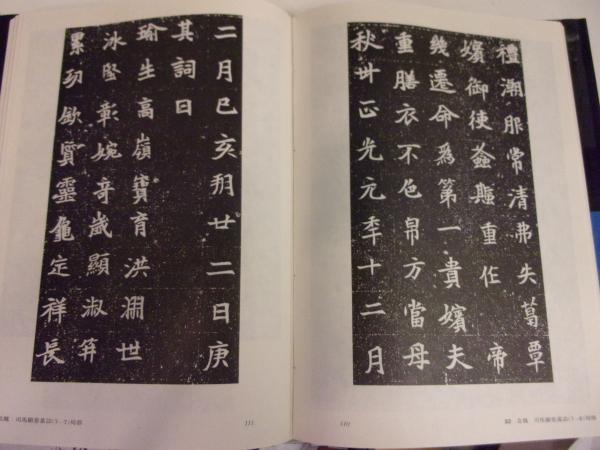 禮潮服常清弗失葛覃
嬪御使螽斯重作 帝
幾遷命爲第一貴嬪夫
重膳衣不色帛方當母
秋卅正光元年十二月
110
北魏 司馬顯姿墓誌
二月巳亥朔廿二日庚
其詞曰
瑜生高嶺寶育洪淵世
彰婉奇歲顯淑笄
欽實靈龜定祥長
北魏 司馬顯姿墓誌
111